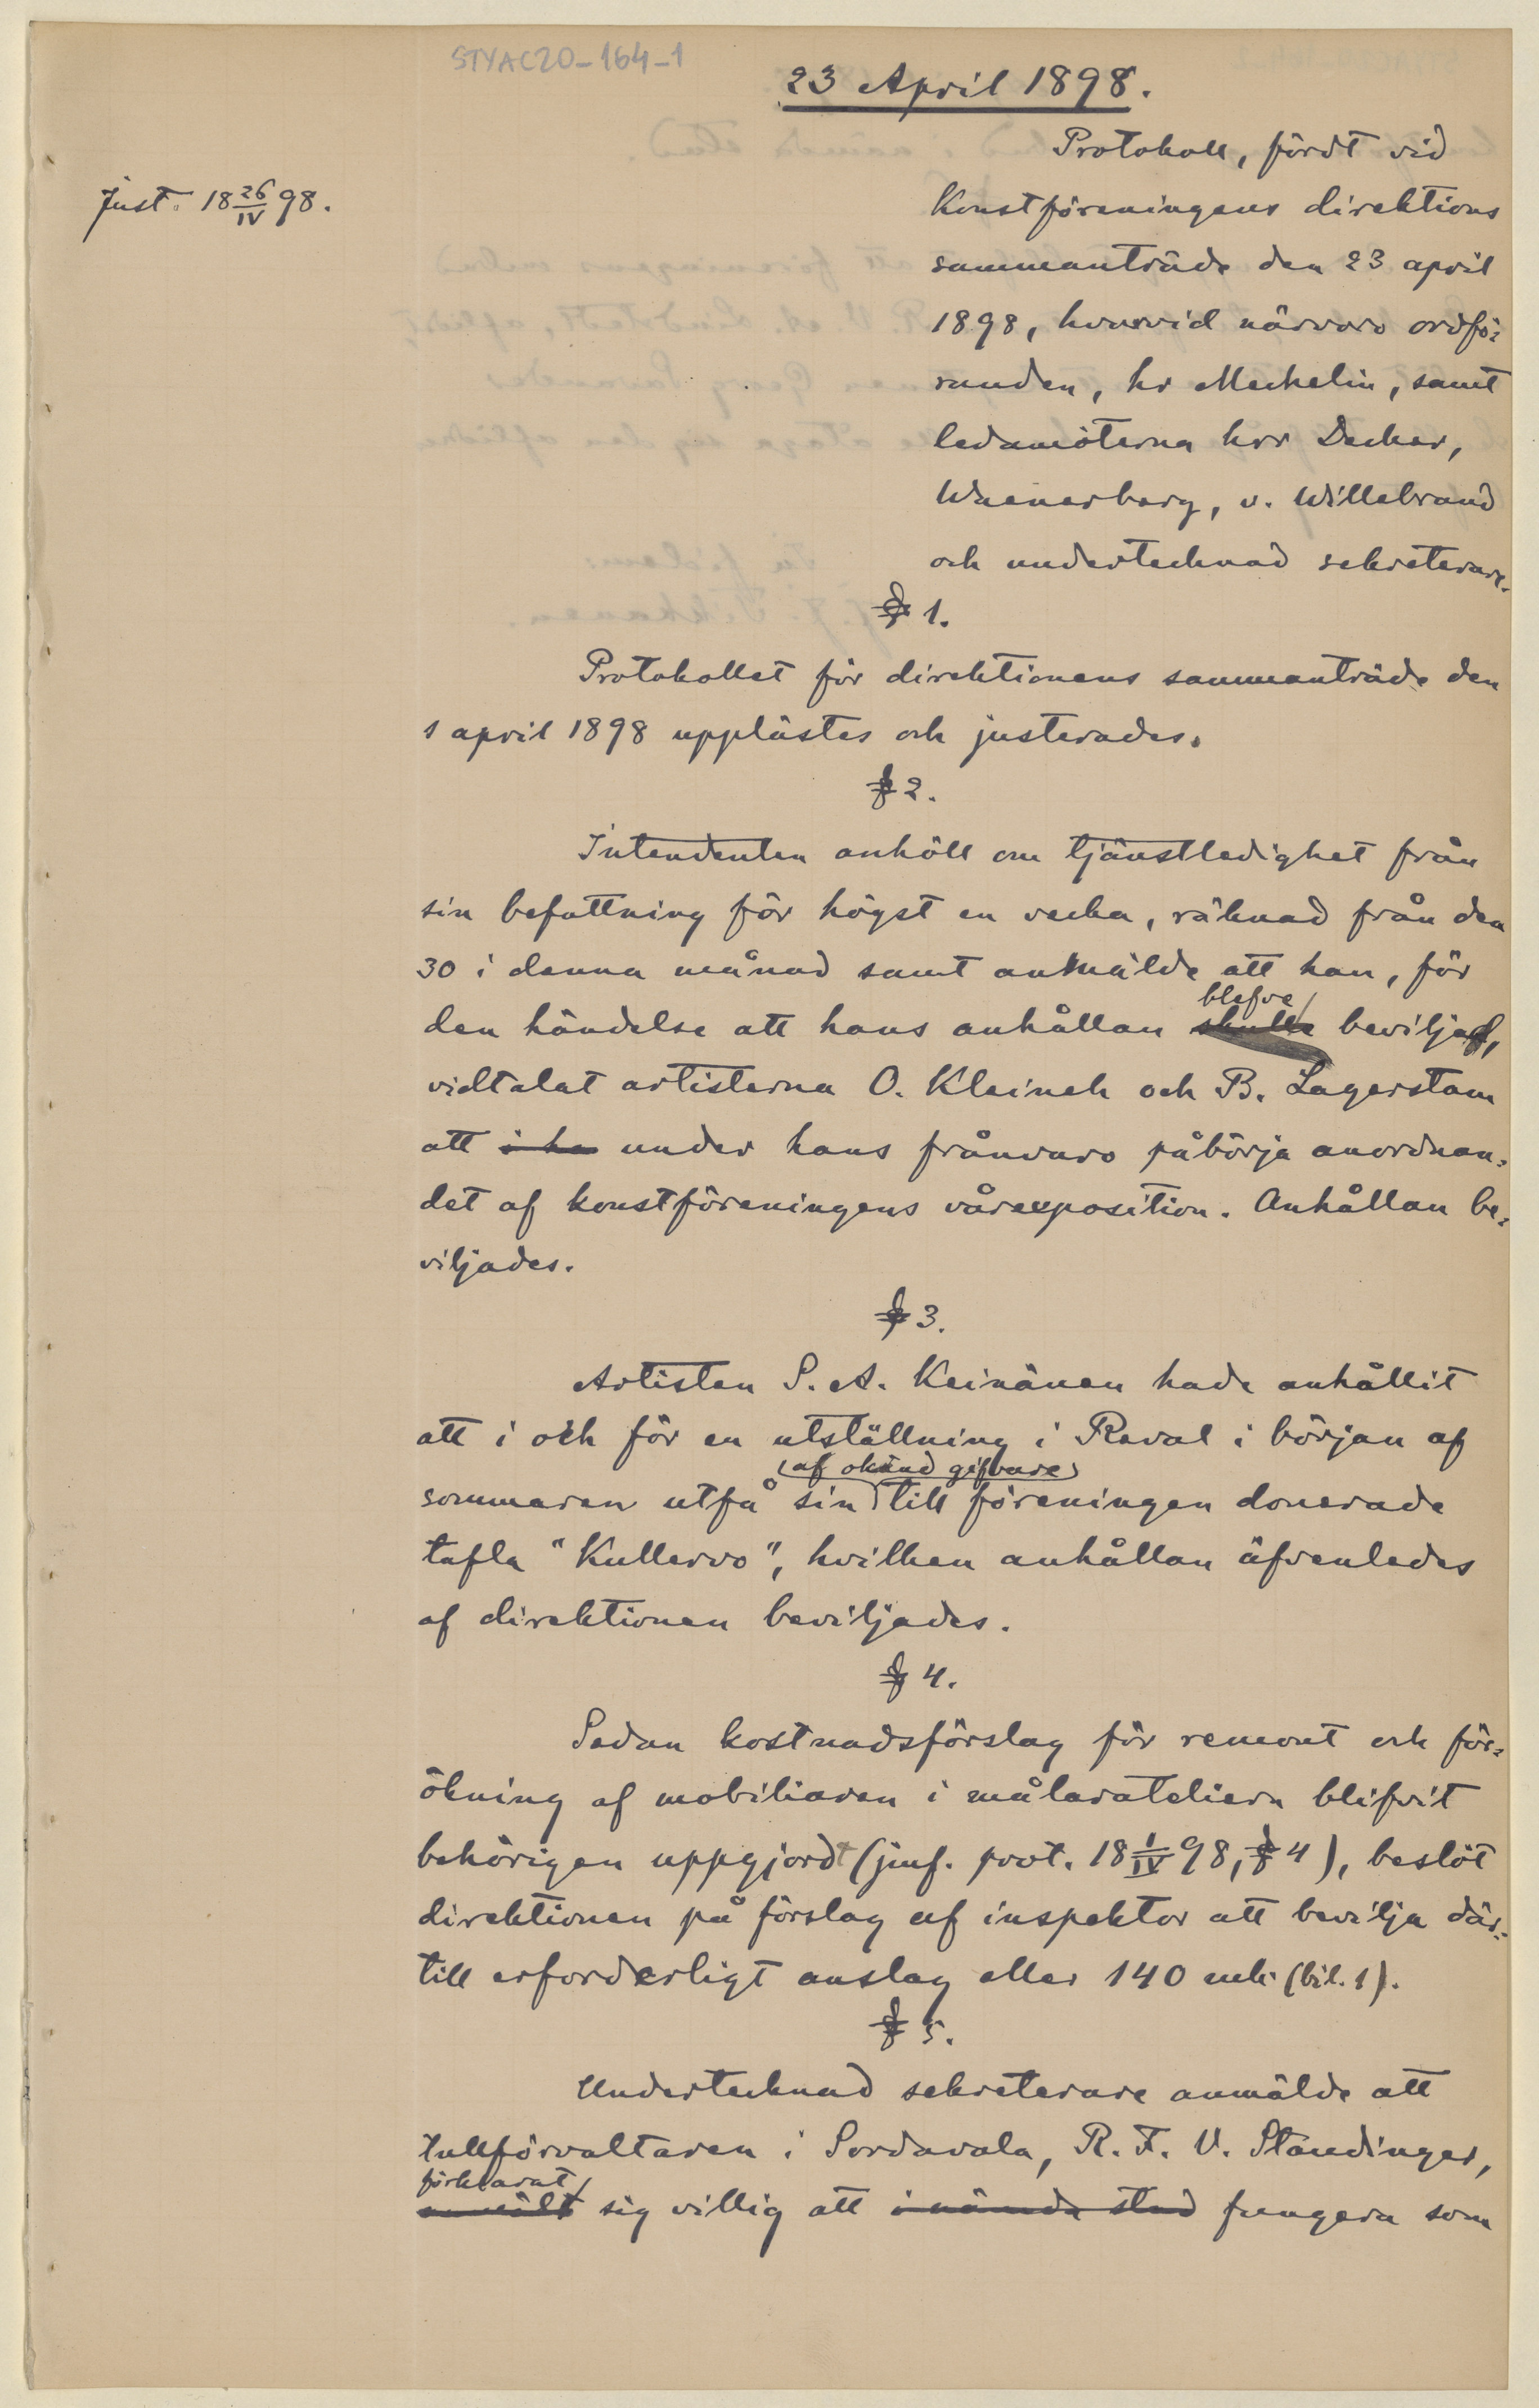 STYAC20-164-1
23 April 1898.
Just. 18 26/IV 98.
Protokoll, fördt vid
Konstföreningens direktions
sammanträde den 23 april
1898, hvarvid närvoro ordfö-
randen, hr Mechelin, samt
ledamöterna hrr Decker,
Waenerberg, v. Willebrand
och undertecknad sekreterare.
§ 1.
Protokollet för direktionens sammanträde den
1 april 1898 upplästes och justerades.
§ 2.
Intendenten anhöll om tjänstledighet från
sin befattning för högst en vecka, räknad från den
30 i denna månad samt anmälde att han, för
blefve
den händelse att hans anhållan skulle beviljad,
vidtalat artisterna O. Kleineh och B. Lagerstam
att i ha under hans frånvaro påbörja anordnan-
det af konstföreningens vårexposition. Anhållan be-
viljades.
§ 3.
Artisten S. A. Keinänen hade anhållit
att i och för en utställning i Reval i början af
(af okänd gifvare)
sommaren utfå sin till föreningen donerade
tafla "Kullervo", hvilken anhållan äfvenledes
af direktionen beviljades.
§ 4.
Sedan kostnadsförslag för remont och för-
ökning af mobiliaren i målarateliern blifvit
behörigen uppgjordt (jmf. prot. 18 1/IV 98, § 4), beslöt
direktionen på förslag af inspektor att bevilja där-
till erforderligt anslag eller 140 mk (bil. 1).
§ 5.
Undertecknad sekreterare anmälde att
tullförvaltaren i Sordavala, R. F. V. Staudinger,
förklarat
anmält sig villig att i nämda stad fungera som